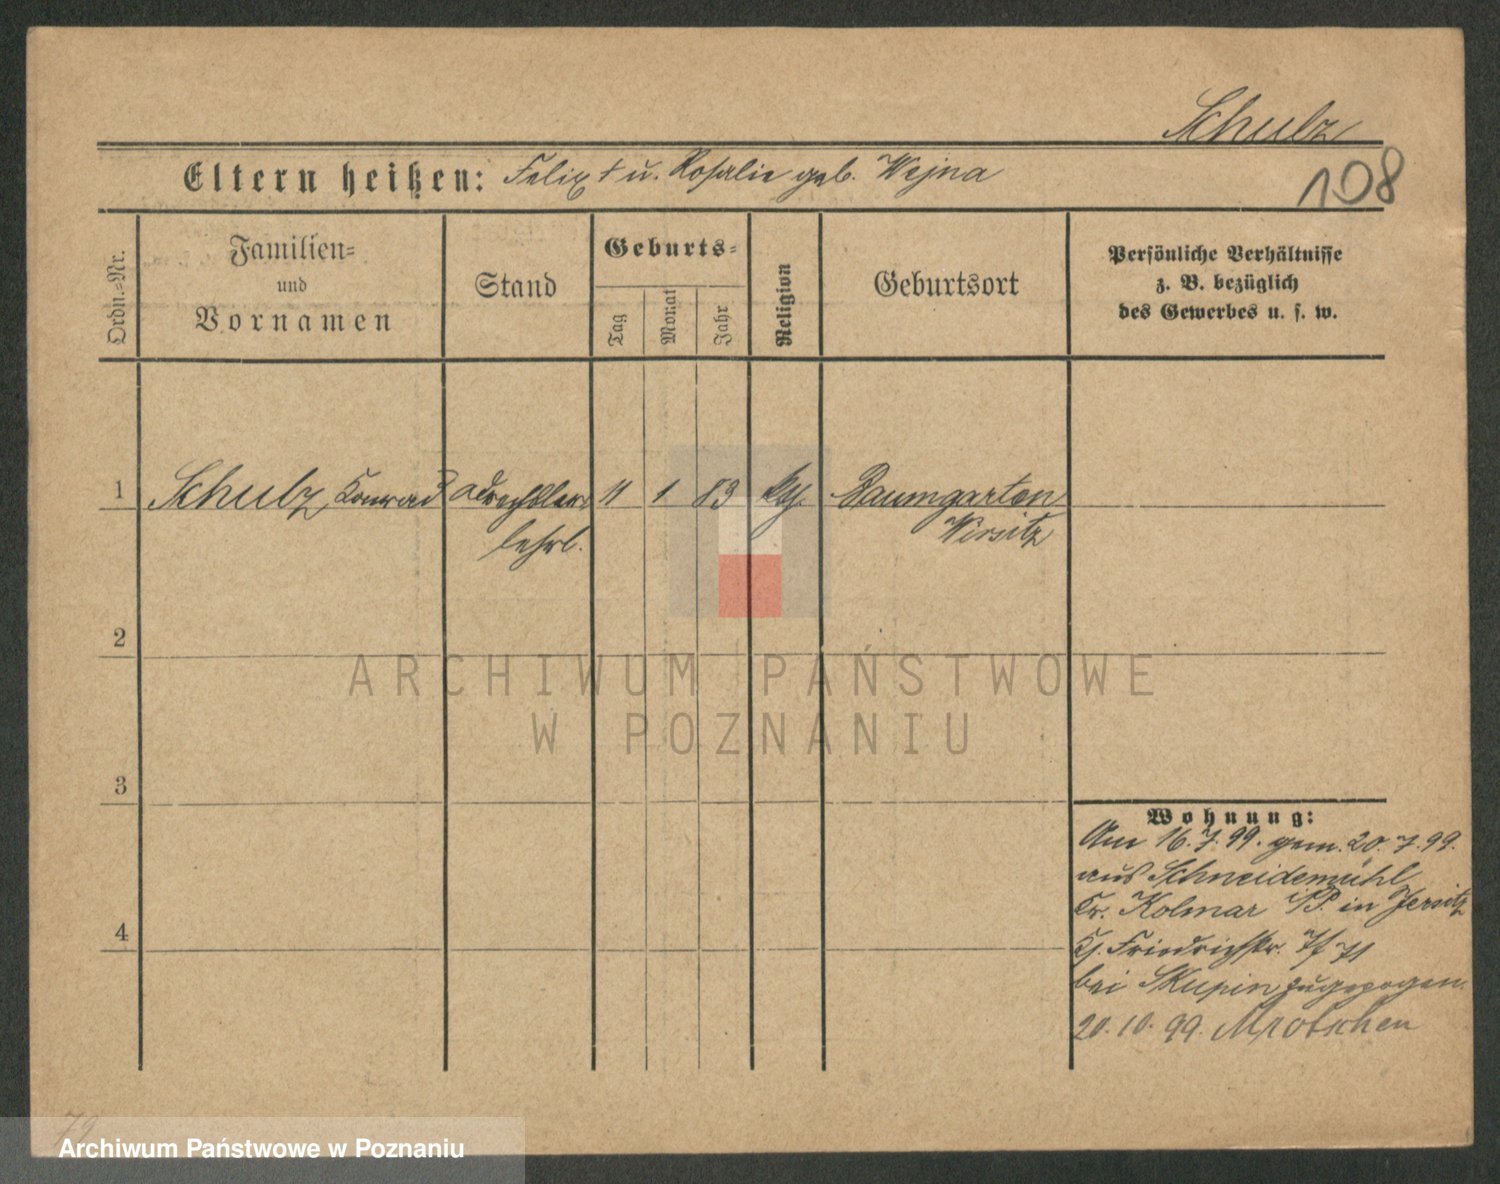 Schulz
108
Eltern heißen: Felix † u. Rosalie geb. Wejna
Ordn.-Nr.
Familien-
und
Vornamen
Stand
Geburts-
Tag
Monat
Jahr
Religion
Geburtsort
Persönliche Verhältnisse
z. B. bezüglich
des Gewerbes u. s. w.
1 Schulz, Konrad 11 1 83 kth. Baumgarten
lehrl. Wirsitz
2
ARCHIWUM PAŃSTWOWE
W POZNANIU
3
Wohnung:
Am 16.7.99. gem. 20.7.99.
aus Schneidemühl
Kr. Kolmar i/P. in Jersitz
Friedrichstr.
bei Skupin zugezogen.
4
20.10.99. Mrotschen
Archiwum Państwowe w Poznaniu